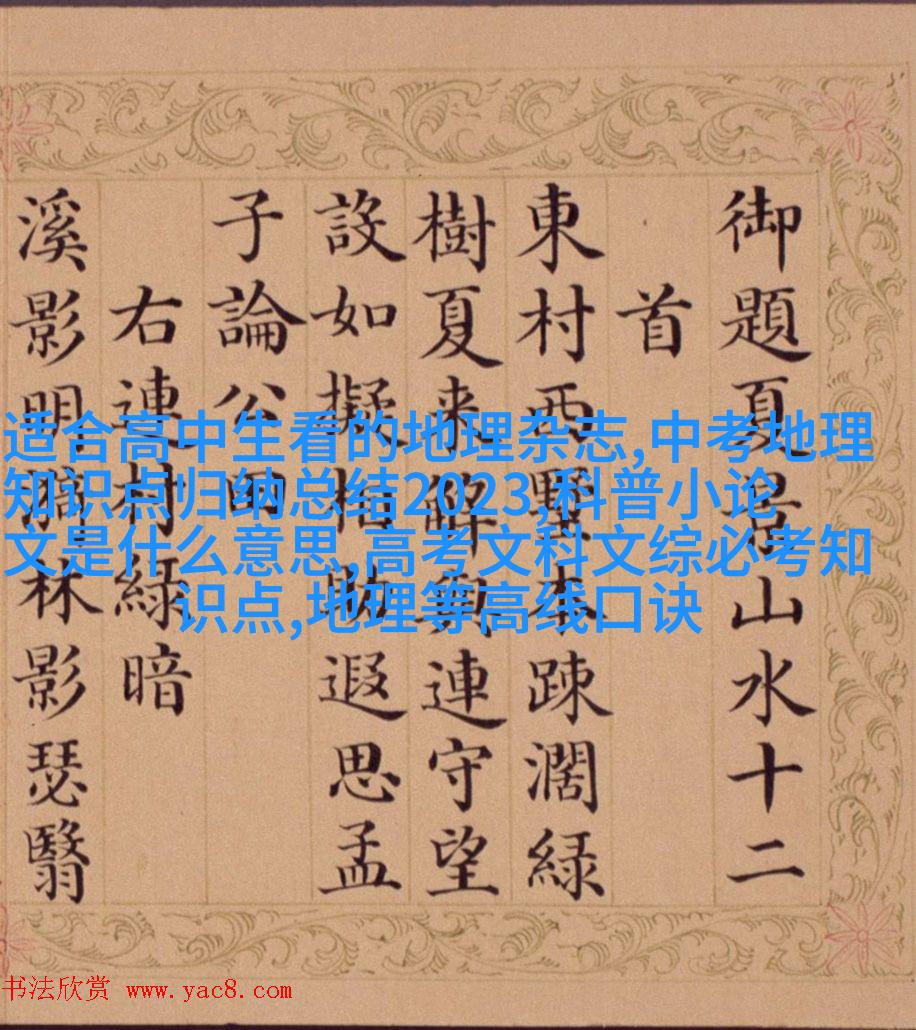 御題夏景山水十二
首
東村西墅本疎濶緑
樹夏来解連守望
設如擬相助遐思孟
子論公田
右連村緑暗
溪影明林影瑟翳
适合高中生看的地理杂志,中考地理
知识点归纳总结2023,科普小论
文是什么意思,高考文科文综必考知
识点,地理等高线口诀
书法欣赏 www.yac8.com